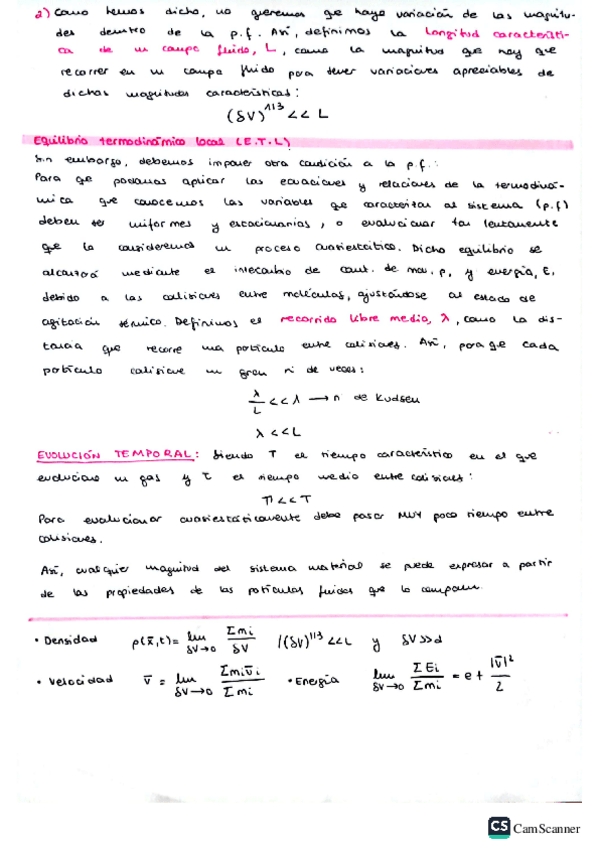 2) Como hemos dicho, no queremos que haya variación de las magnitu-
des dentro de la p.f. Así, definimos la longitud característi-
ca de un campo fluido, L, como la magnitud que hay que
recorrer en un campo fluido para tener variaciones apreciables de
dichas magnitudes características:
(δV)^1/3 << L
Equilibrio termodinámico local (E.T.L)
Sin embargo, debemos imponer otra condición a la p.f.:
Para que podamos aplicar las ecuaciones y relaciones de la termodiná-
mica que conocemos las variables que caracterizan al sistema (p.f)
deben ser uniformes y estacionarias, o evolucionar tan lentamente
que lo consideremos un proceso cuasiestático. Dicho equilibrio se
alcanzará mediante el intercambio de cant. de mov, p, y energía, E,
debido a las colisiones entre moléculas, ajustándose al estado de
agitación térmico. Definimos el recorrido libre medio, λ, como la dis-
tancia que recorre una partícula entre colisiones. Así, para que cada
partícula colisione un gran nº de veces:
λ/L << λ → n de Kudsen
λ << L
EVOLUCIÓN TEMPORAL: Siendo T el tiempo característico en el que
evoluciona un gas y τ el tiempo medio entre colisiones:
τ << T
Para evolucionar cuasiestáticamente debe pasar MUY poco tiempo entre
colisiones.
Así, cualquier magnitud del sistema material se puede expresar a partir
de las propiedades de las partículas fluidas que lo componen.
• Densidad ρ(x̄,t) = lim δV→0 Σmi/δV /(δV)^1/3 << L y δV >> d
• Velocidad v̄ = lim δV→0 Σmiv̄i/Σmi • Energía lim δV→0 ΣEi/Σmi = e + |v̄|²/2
CS CamScanner